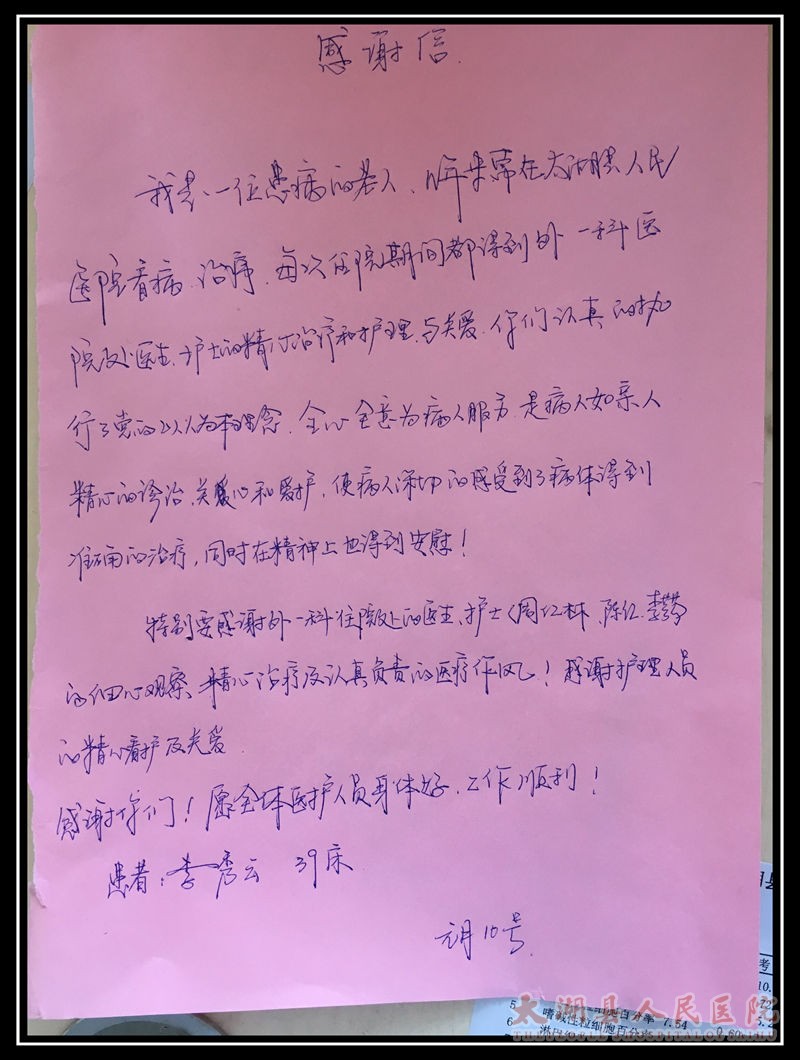 感谢信.
我是一位患病的老人、年来常在太湖县人民
医院看病、治疗、每次住院期间都得到外一科医
院及处医生、护士的精心治疗和护理与关爱、你们认真的执
行了党的以人为本理念、全心全意为病人服务、是病人如亲人
精心的诊治、关心和爱护,使病人深切的感受到了病体得到
准确的治疗,同时在精神上也得到安慰!
特别要感谢外一科住院处的医生、护士(周红林、陈红、李
的细心观察、精心治疗及认真负责的医疗作风!感谢护理人员
的精心看护及关爱
感谢你们!愿全体医护人员身体好、工作顺利!
患者:李秀云 39床
元月10号.
考
10.
5. 嗜碱性粒细胞百分率 7.54
6 淋巴细胞百分率 0.60
太湖县人民医院